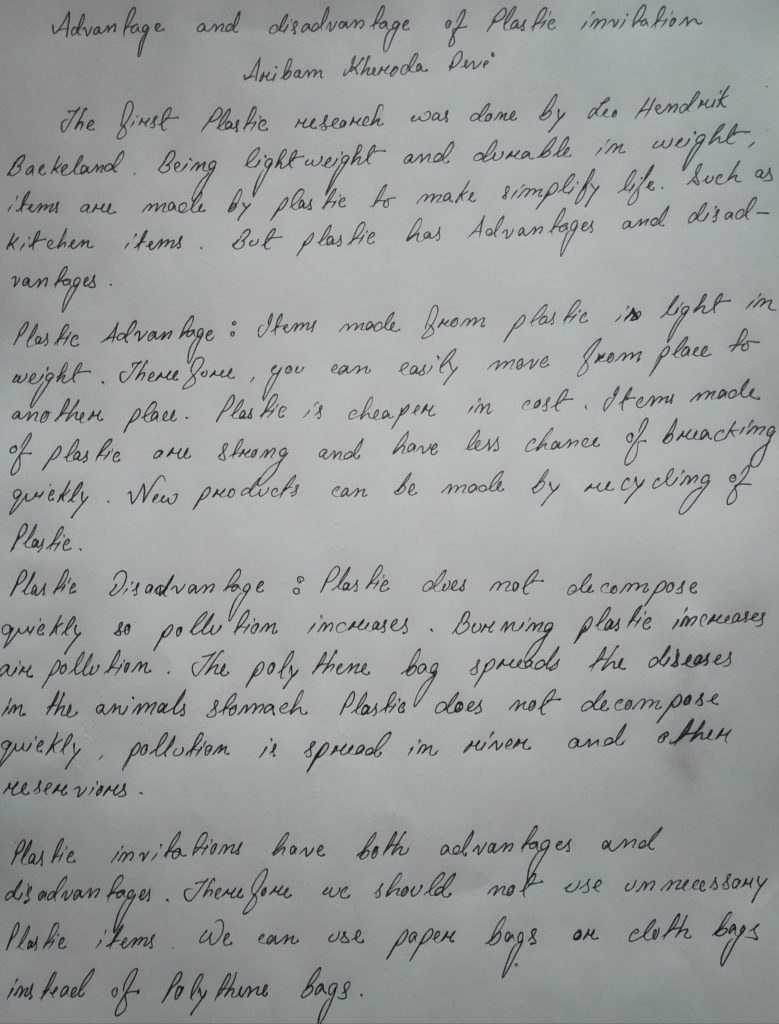 Advantage and disadvantage of Plastic invitation
Aribam Kheroda Devi
The first Plastic research was done by Leo Hendrik
Baekeland. Being lightweight and durable in weight,
items are made by plastic to make simplify life. Such as
kitchen items. But plastic has Advantages and disad-
vantages.
Plastic Advantage : Items made from plastic is light in
weight. Therefore, you can easily move from place to
another place. Plastic is cheaper in cost. Items made
of plastic are strong and have less chance of breacking
quickly. New products can be made by recycling of
Plastic.
Plastic Disadvantage : Plastic does not decompose
quickly so pollution increases. Burning plastic increases
air pollution. The polythene bag spreads the diseases
in the animals stomach Plastic does not decompose
quickly, pollution is spread in river and other
reserviors.
Plastic invitations have both advantages and
disadvantages. Therefore we should not use unnecessary
Plastic items. We can use paper bags or cloth bags
instead of Polythene bags.